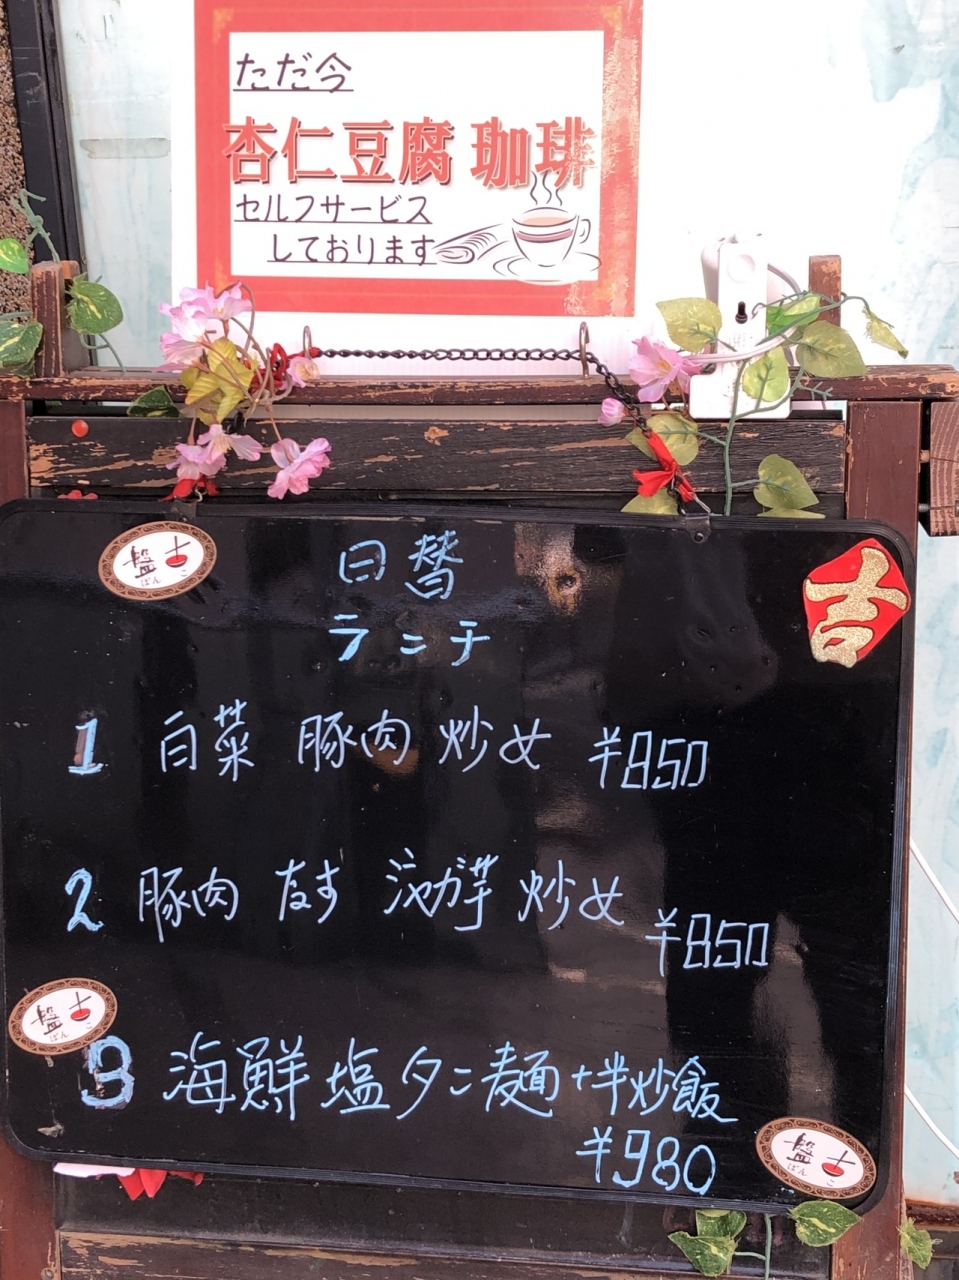 ただ今
杏仁豆腐 珈琲
セルフサービス
しております
盤古
ばんこ
日替
ランチ
吉
1 白菜 豚肉 炒め ¥850
2 豚肉 なす ジャガ芋 炒め
¥850
盤古
ばんこ
3 海鮮 塩タンニ麺+半炒飯
¥980
盤古
ばんこ